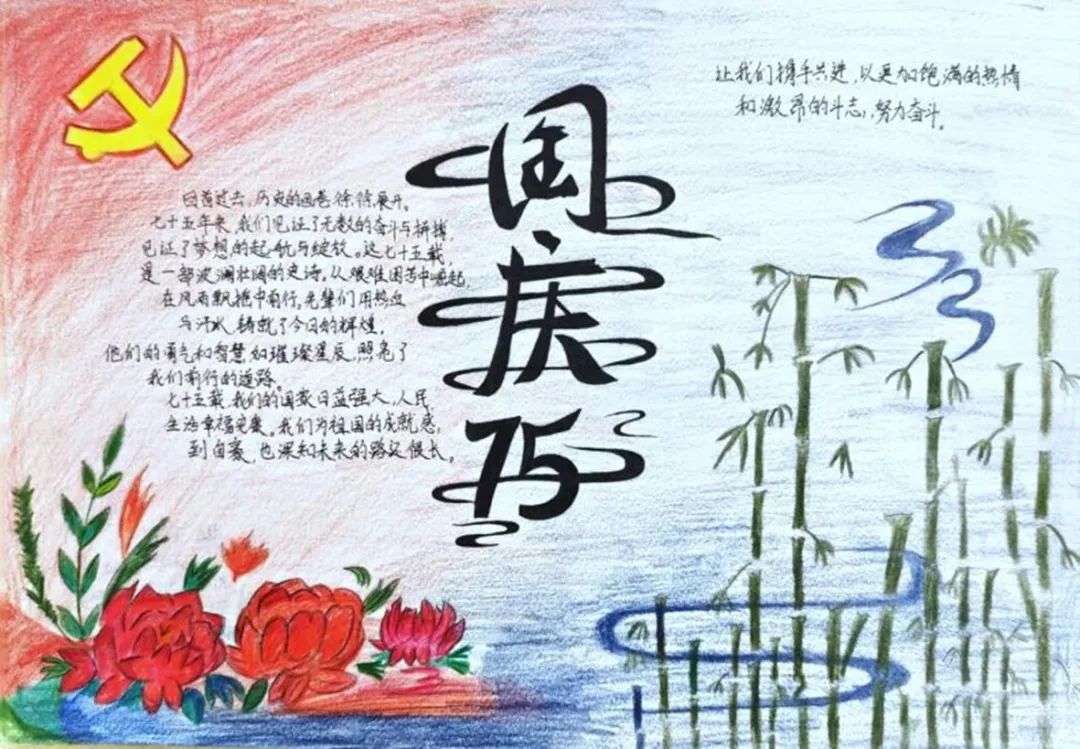 国庆75
回首过去,历史的画卷徐徐展开。
七十五年来,我们见证了无数的奋斗与拼搏,
见证了梦想的起航与绽放。这七十五载,
是一部波澜壮阔的史诗。从艰难困苦中崛起,
在风雨飘摇中前行,先辈们用热血
与汗水,铸就了今日的辉煌,
他们的勇气和智慧如璀璨星辰,照亮了
我们前行的道路。
七十五载,我们的国家日益强大,人民
生活幸福安康。我们为祖国的成就感,
到自豪,也深知未来的路还很长。
让我们携手共进,以更加饱满的热情
和激昂的斗志,努力奋斗。